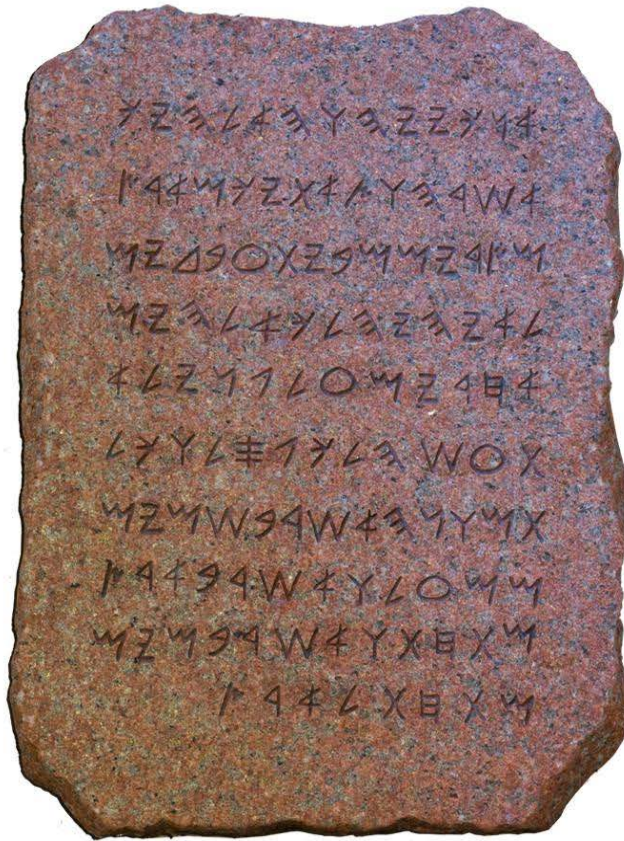 𐤀𐤍𐤊𐤉𐤉𐤄𐤅𐤄𐤀𐤋𐤄𐤉𐤊
𐤀𐤔𐤓𐤄𐤅𐤑𐤀𐤕𐤉𐤊𐤌𐤀𐤓𐤑
𐤌𐤑𐤓𐤉𐤌𐤌𐤁𐤉𐤕𐤏𐤁𐤃𐤉𐤌
𐤋𐤀𐤉𐤄𐤉𐤄𐤋𐤊𐤀𐤋𐤄𐤉𐤌
𐤀𐤇𐤓𐤉𐤌𐤏𐤋𐤐𐤍𐤉𐤋𐤀
𐤕𐤏𐤔𐤄𐤋𐤊𐤐𐤎𐤋𐤅𐤊𐤋
𐤕𐤌𐤅𐤍𐤄𐤀𐤔𐤓𐤁𐤔𐤌𐤉𐤌
𐤌𐤌𐤏𐤋𐤅𐤀𐤔𐤓𐤁𐤀𐤓𐤑
𐤌𐤕𐤇𐤕𐤅𐤀𐤔𐤓𐤁𐤌𐤉𐤌
𐤌𐤕𐤇𐤕𐤋𐤀𐤓𐤑